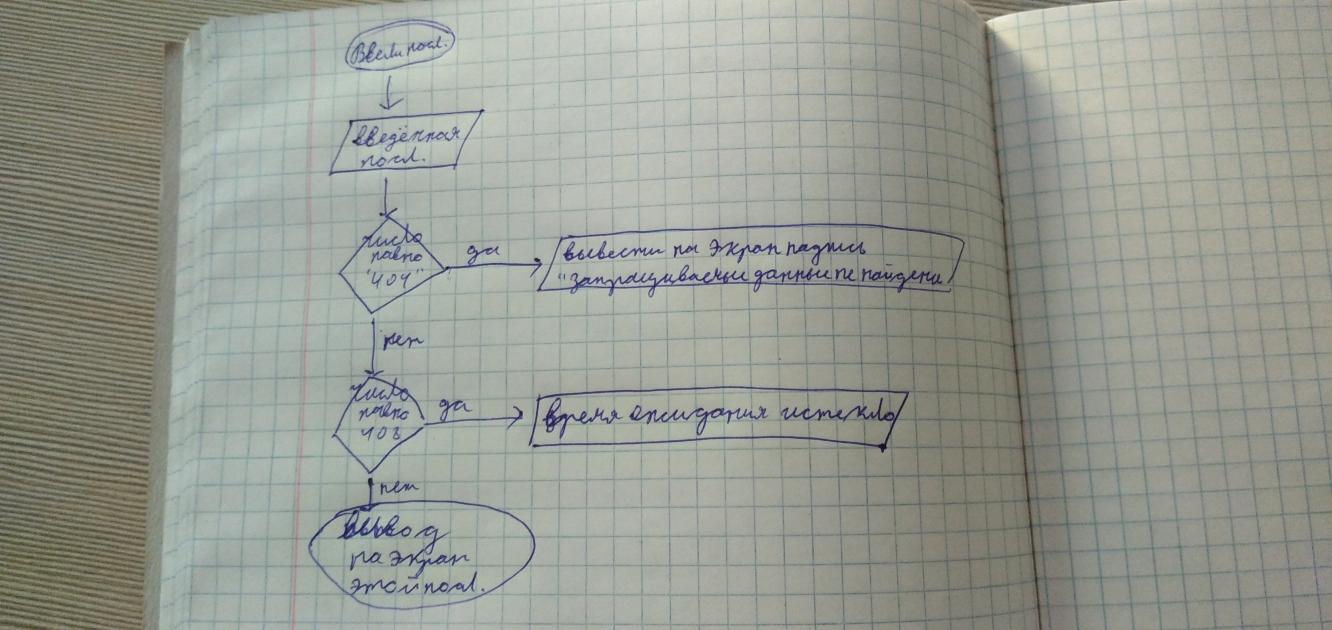 Ввели посл.
введённая
посл.
число
равно
"404"
да
вывести на экран надпись
"Запрашиваемые данные не найдены
нет
число
равно
408
да
время ожидания истекло
нет
вывод
на экран
этой посл.